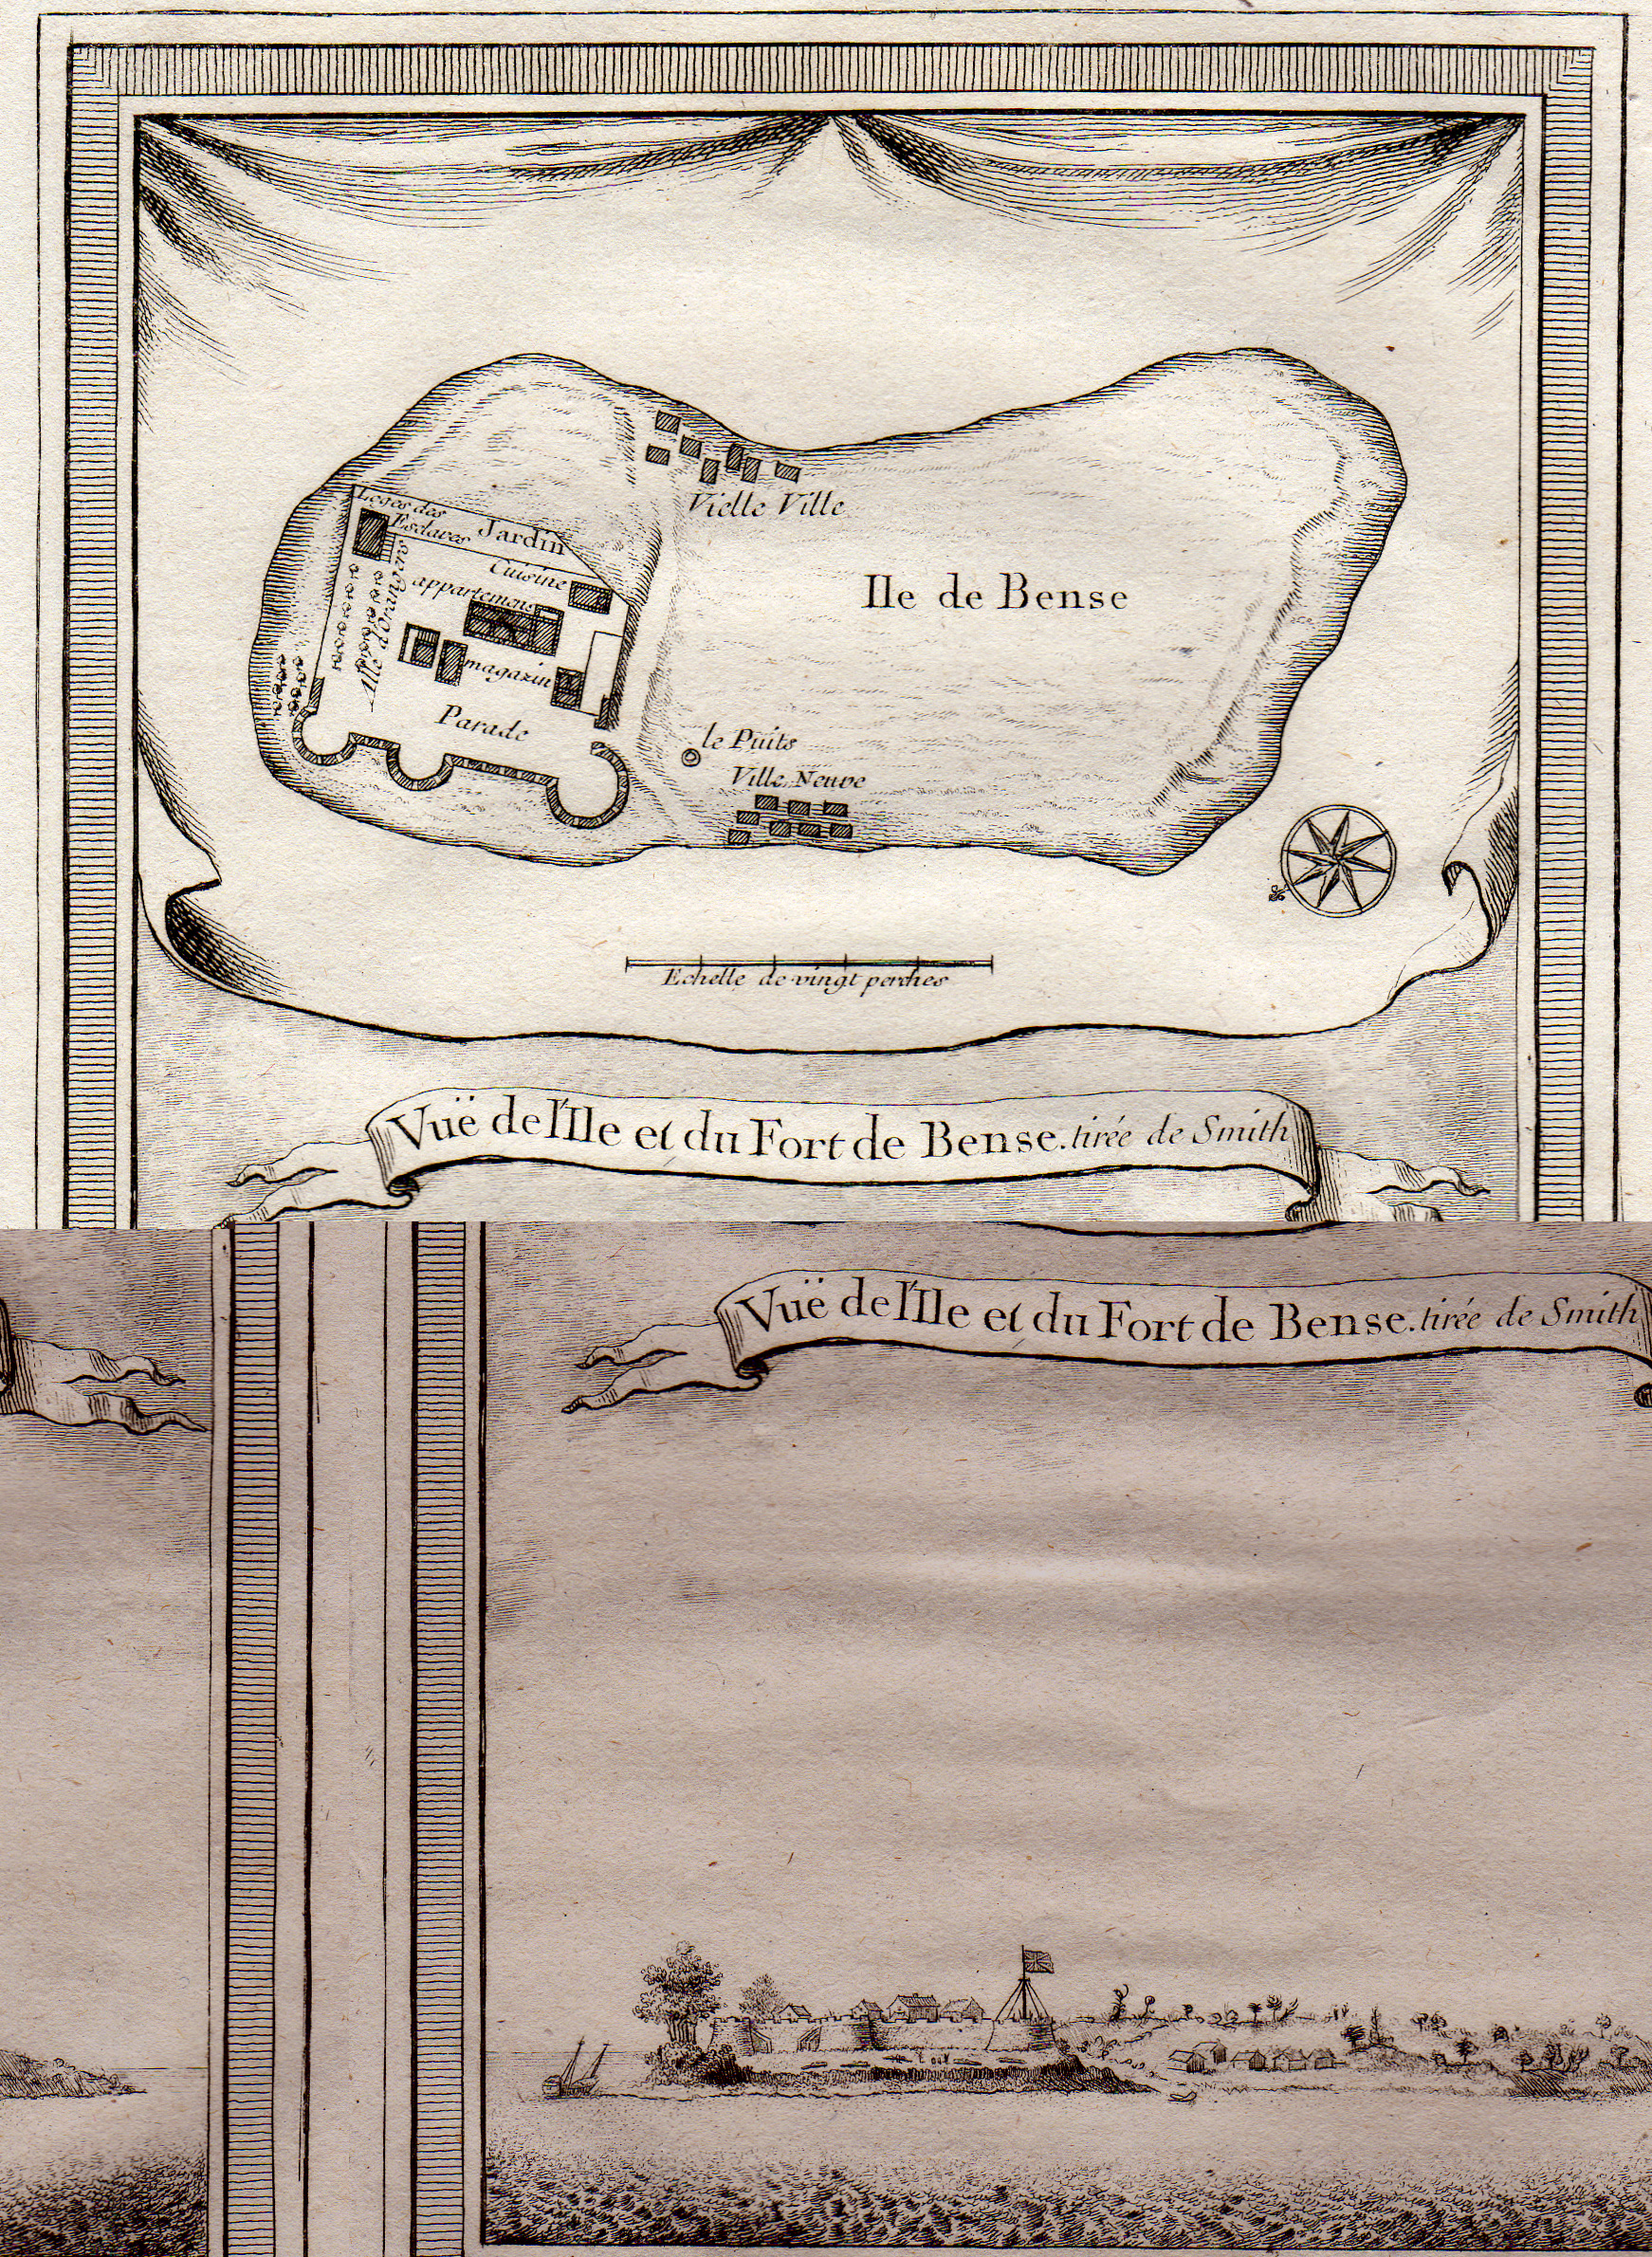 Vielle Ville
Loges des
Esclaves
Jardin
Cuisine
appartemens
Allé d'Orangers
magazin
Parade
Ile de Bense
le Puits
Ville Neuve
Echelle de vingt perches
Vuë de l'Ile et du Fort de Bense. tirée de Smith
Vuë de l'Ile et du Fort de Bense. tirée de Smith